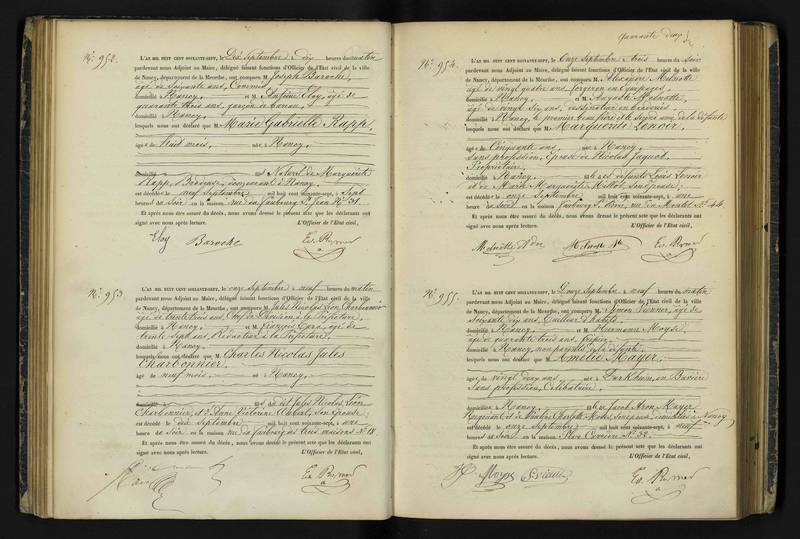 quarante deux
N° 952.
L'AN MIL HUIT CENT SOIXANTE-SEPT, le Dix Septembre à dix heures du matin
pardevant nous Adjoint au Maire, délégué faisant fonctions d'Officier de l'État civil de la ville
de Nancy, département de la Meurthe, ont comparu M. Joseph Baroche,
âgé de soixante ans,
domicilié à Nancy, et M. Antoine Eloy, âgé de
quarante trois ans, garçon de
domicilié à Nancy,
lesquels nous ont déclaré que M Marie Gabrielle Rapp,
âgé e de Huit mois, né e à Nancy,
domicilié naturel de Marguerite
Rapp, Brodeuse, demeurant à Nancy,
est décédé e le neuf Septembre mil huit cent soixante-sept, à Sept
heures du soir en la maison rue du faubourg St Jean N° 31.
Et après nous être assuré du décès, nous avons dressé le présent acte que les déclarants ont
signé avec nous après lecture. L'Officier de l'État civil,
Eloy Baroche
N° 953
L'AN MIL HUIT CENT SOIXANTE-SEPT, le onze Septembre à neuf heures du matin
pardevant nous Adjoint au Maire, délégué faisant fonctions d'Officier de l'État civil de la ville
de Nancy, département de la Meurthe, ont comparu M. Jules Nicolas Léon Charbonnier
âgé de trente ans, Chef de Division à la Préfecture,
domicilié à Nancy, et M. François
trente sept ans, Rédacteur à la Préfecture,
domicilié à Nancy,
lesquels nous ont déclaré que M. Charles Nicolas Jules
Charbonnier,
âgé de neuf mois, né à Nancy,
domicilié à fils de dit Jules Nicolas Léon
Charbonnier, et d'Anne Victorine son épouse,
est décédé le dix Septembre mil huit cent soixante-sept, à une
heure du soir en la maison rue du faubourg des trois maisons N° 18
Et après nous être assuré du décès, nous avons dressé le présent acte que les déclarants ont
signé avec nous après lecture. L'Officier de l'État civil,
N° 954.
L'AN MIL HUIT CENT SOIXANTE-SEPT, le Onze Septembre à trois heures du soir
pardevant nous Adjoint au Maire, délégué faisant fonctions d'Officier de l'État civil de la ville
de Nancy, département de la Meurthe, ont comparu M. Alexandre
âgé de vingt quatre ans, forgeron en équipages,
domicilié à Nancy, et M. Auguste
âgé de vingt six ans, dessinateur en broderies
domicilié à Nancy, le premier beau frère et le second ami de la défunte
lesquels nous ont déclaré que M Marguerite Lenoir,
âgé e de Cinquante ans, né e à Nancy,
sans profession, Epouse de Nicolas Jaquot,
Propriétaire,
domicilié e à Nancy, fille de défunts Louis Lenoir
et de Marie Marguerite son épouse,
est décédé e le onze Septembre mil huit cent soixante-sept, à une
heure du soir en la maison faubourg St Pierre, rue du Montet N° 44.
Et après nous être assuré du décès, nous avons dressé le présent acte que les déclarants ont
signé avec nous après lecture. L'Officier de l'État civil,
N° 955.
L'AN MIL HUIT CENT SOIXANTE-SEPT, le Douze Septembre à neuf heures du matin
pardevant nous Adjoint au Maire, délégué faisant fonctions d'Officier de l'État civil de la ville
de Nancy, département de la Meurthe, ont comparu M. Simon
soixante six ans, Tailleur d'habits,
domicilié à Nancy, et M. Hermann Moyse,
âgé de quarante trois ans, fripier,
domicilié à Nancy, non parents de la défunte
lesquels nous ont déclaré que M Amélie Mayer,
âgé e de vingt deux ans, né e à Durkheim, en Bavière
sans profession, Célibataire,
domicilié e à Nancy, fille de Jacob Aron Mayer
Négociant et de son épouse, domiciliés à Nancy
est décédé e le onze Septembre mil huit cent soixante-sept, à neuf
heures du soir en la maison Place Carrière N° 32.
Et après nous être assuré du décès, nous avons dressé le présent acte que les déclarants ont
signé avec nous après lecture. L'Officier de l'État civil,
Moyse